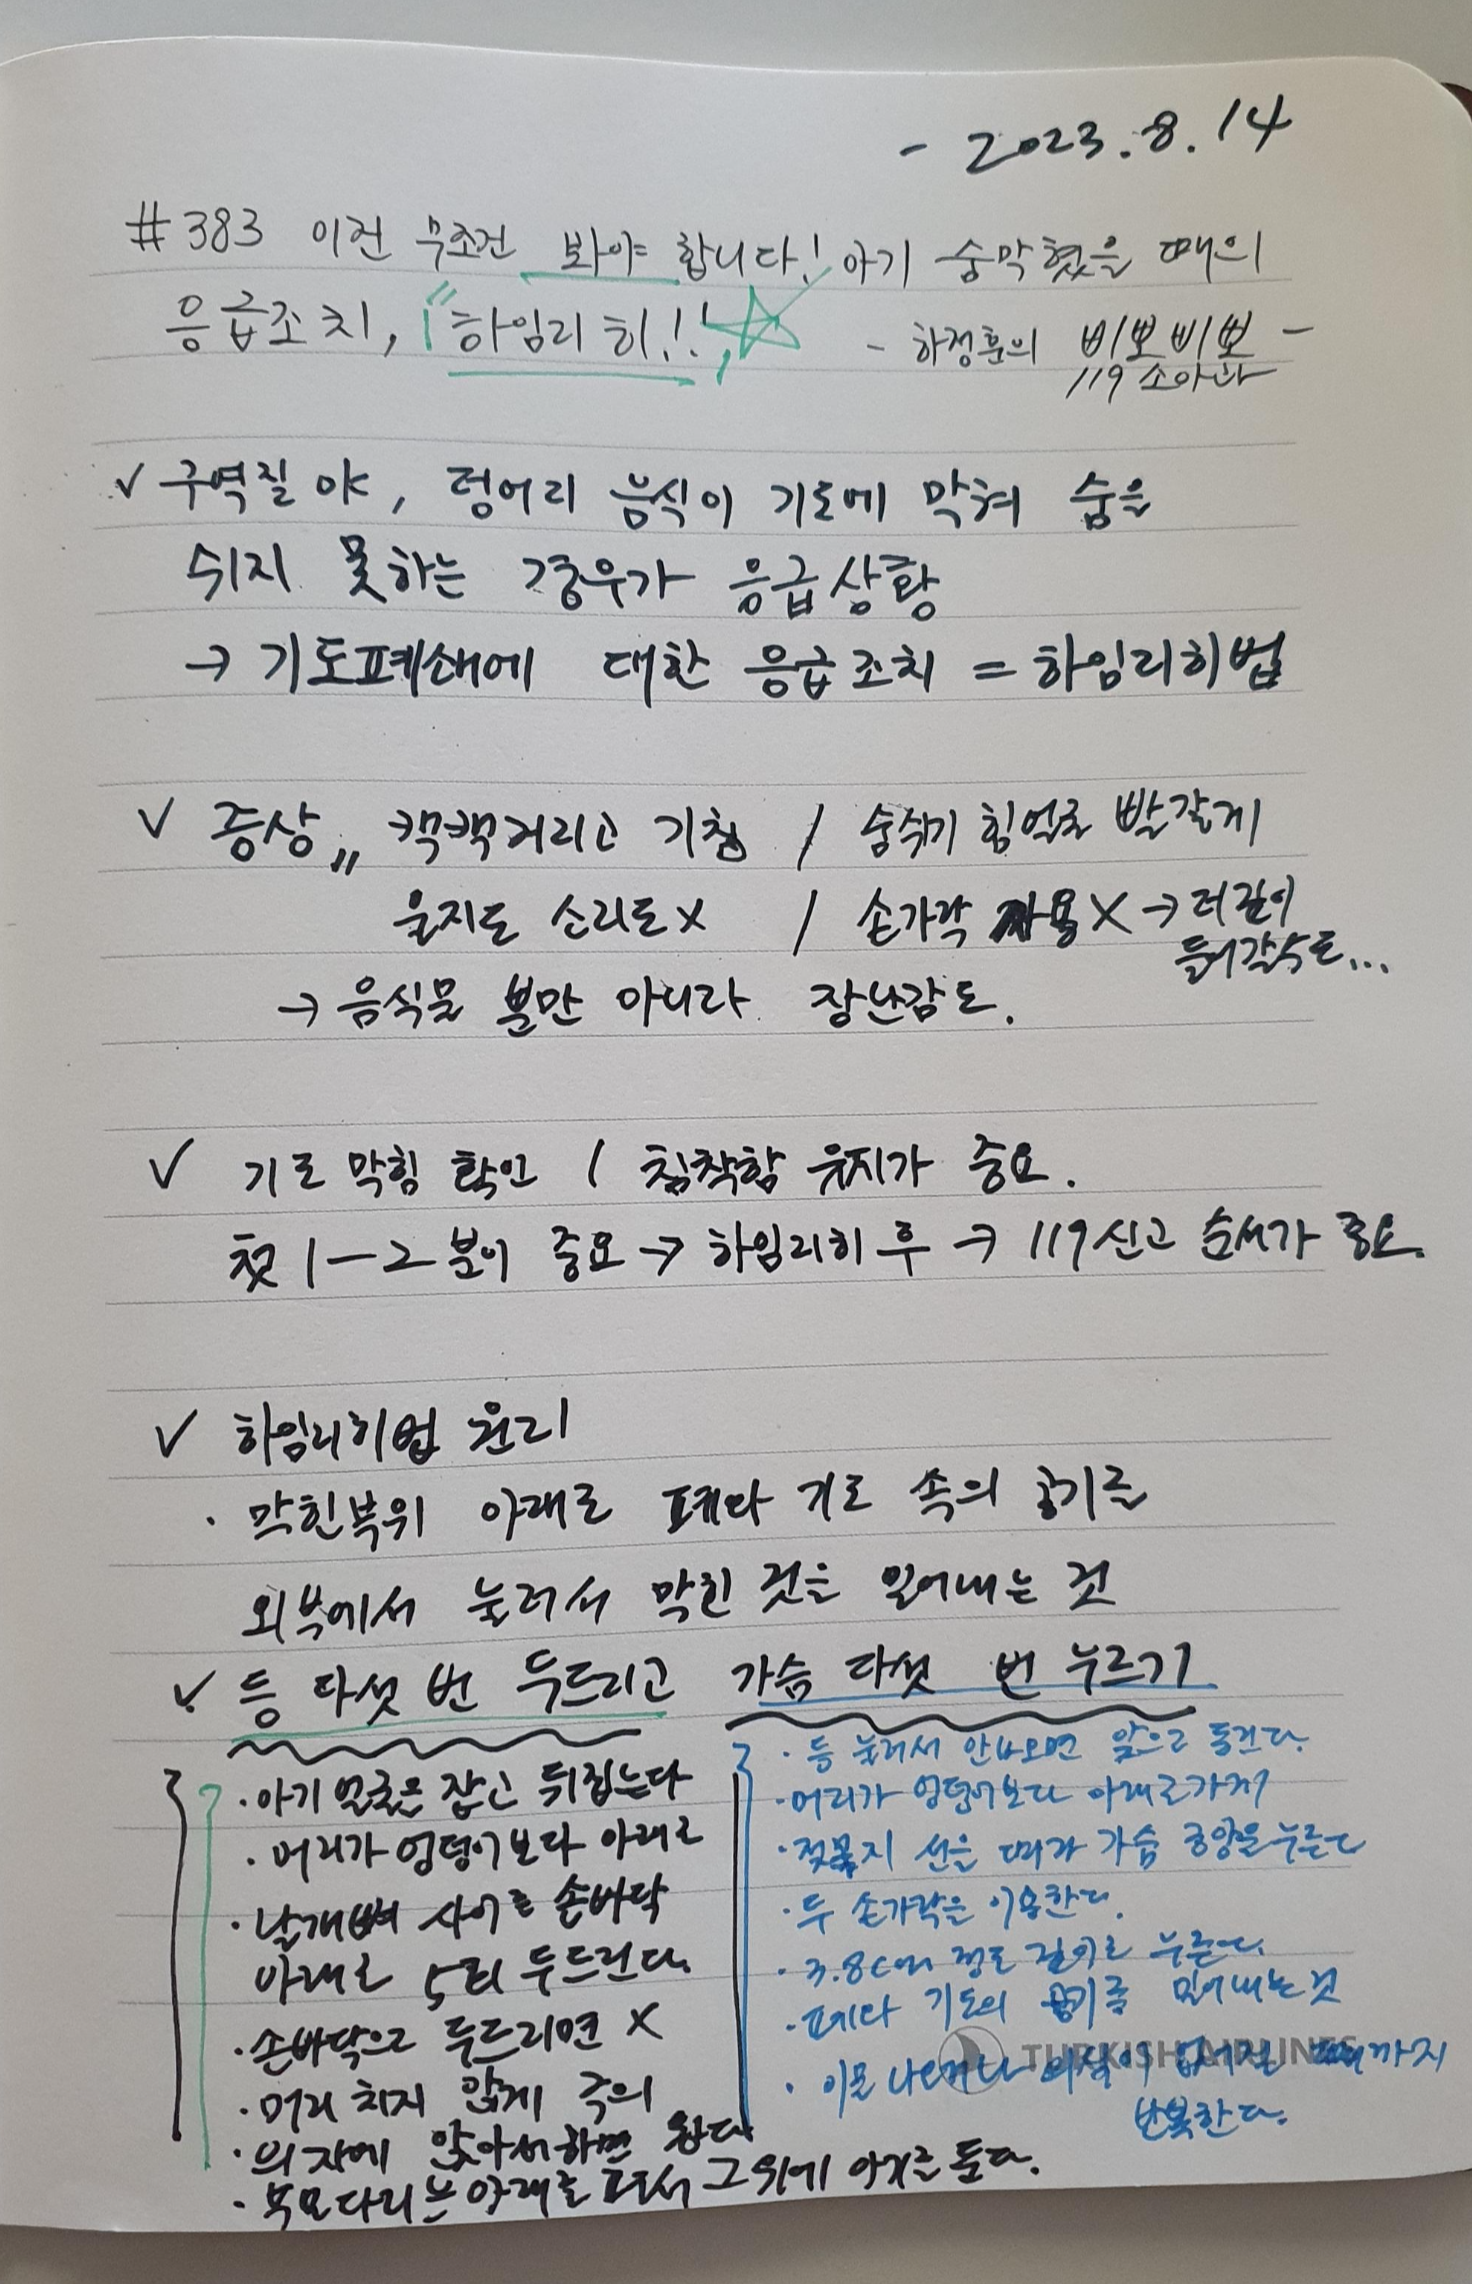 - 2023.8.14
#383 이건 무조건 봐야 합니다! 아기 숨막혔을 때의
응급조치, "하임리히!!"
- 하정훈의 삐뽀삐뽀 -
119 소아과
✓ 구역질 야, 덩어리 음식이 기도에 막혀 숨을
쉬지 못하는 경우가 응급상황
→ 기도폐쇄에 대한 응급조치 = 하임리히법
✓ 증상,, 캑캑거리고 기침 / 숨쉬기 힘얼굴 빨갈게
울지도 소리도 X / 손가락 사용 X → 더 깊이
들어갈수도...
→ 음식물 뿐만 아니라 장난감도.
✓ 기도 막힘 확인 / 침착함 유지가 중요.
첫 1-2분이 중요 → 하임리히 후 → 119신고 순서가 중요.
✓ 하임리히법 원리
· 막힌부위 아래로 폐와 기도 속의 공기를
외부에서 눌러서 막힌 것을 밀어내는 것
✓ 등 다섯 번 두드리고 가슴 다섯 번 누르기
· 아기 얼굴을 잡고 뒤집는다
· 머리가 엉덩이보다 아래로
· 날개뼈 사이를 손바닥
아래로 5회 두드린다.
· 손바닥으로 두드리면 X
· 머리 치지 않게 주의
· 의자에 앉아서하면 쉽다
· 부모다리는 아래로 펴서 그 위에 아기를 둔다.
· 등 눌러서 안나오면 앞으로 돌린다.
· 머리가 엉덩이보다 아래로가게
· 젖꼭지 선을 따라 가슴 중앙을 누른다
· 두 손가락을 이용한다.
· 3.8cm 정도 깊이로 누른다.
· 폐와 기도의 공기를 밀어내는 것
· 이물 나오거나 의식이 없어질 때까지
반복한다.
TURKISH AIRLINES